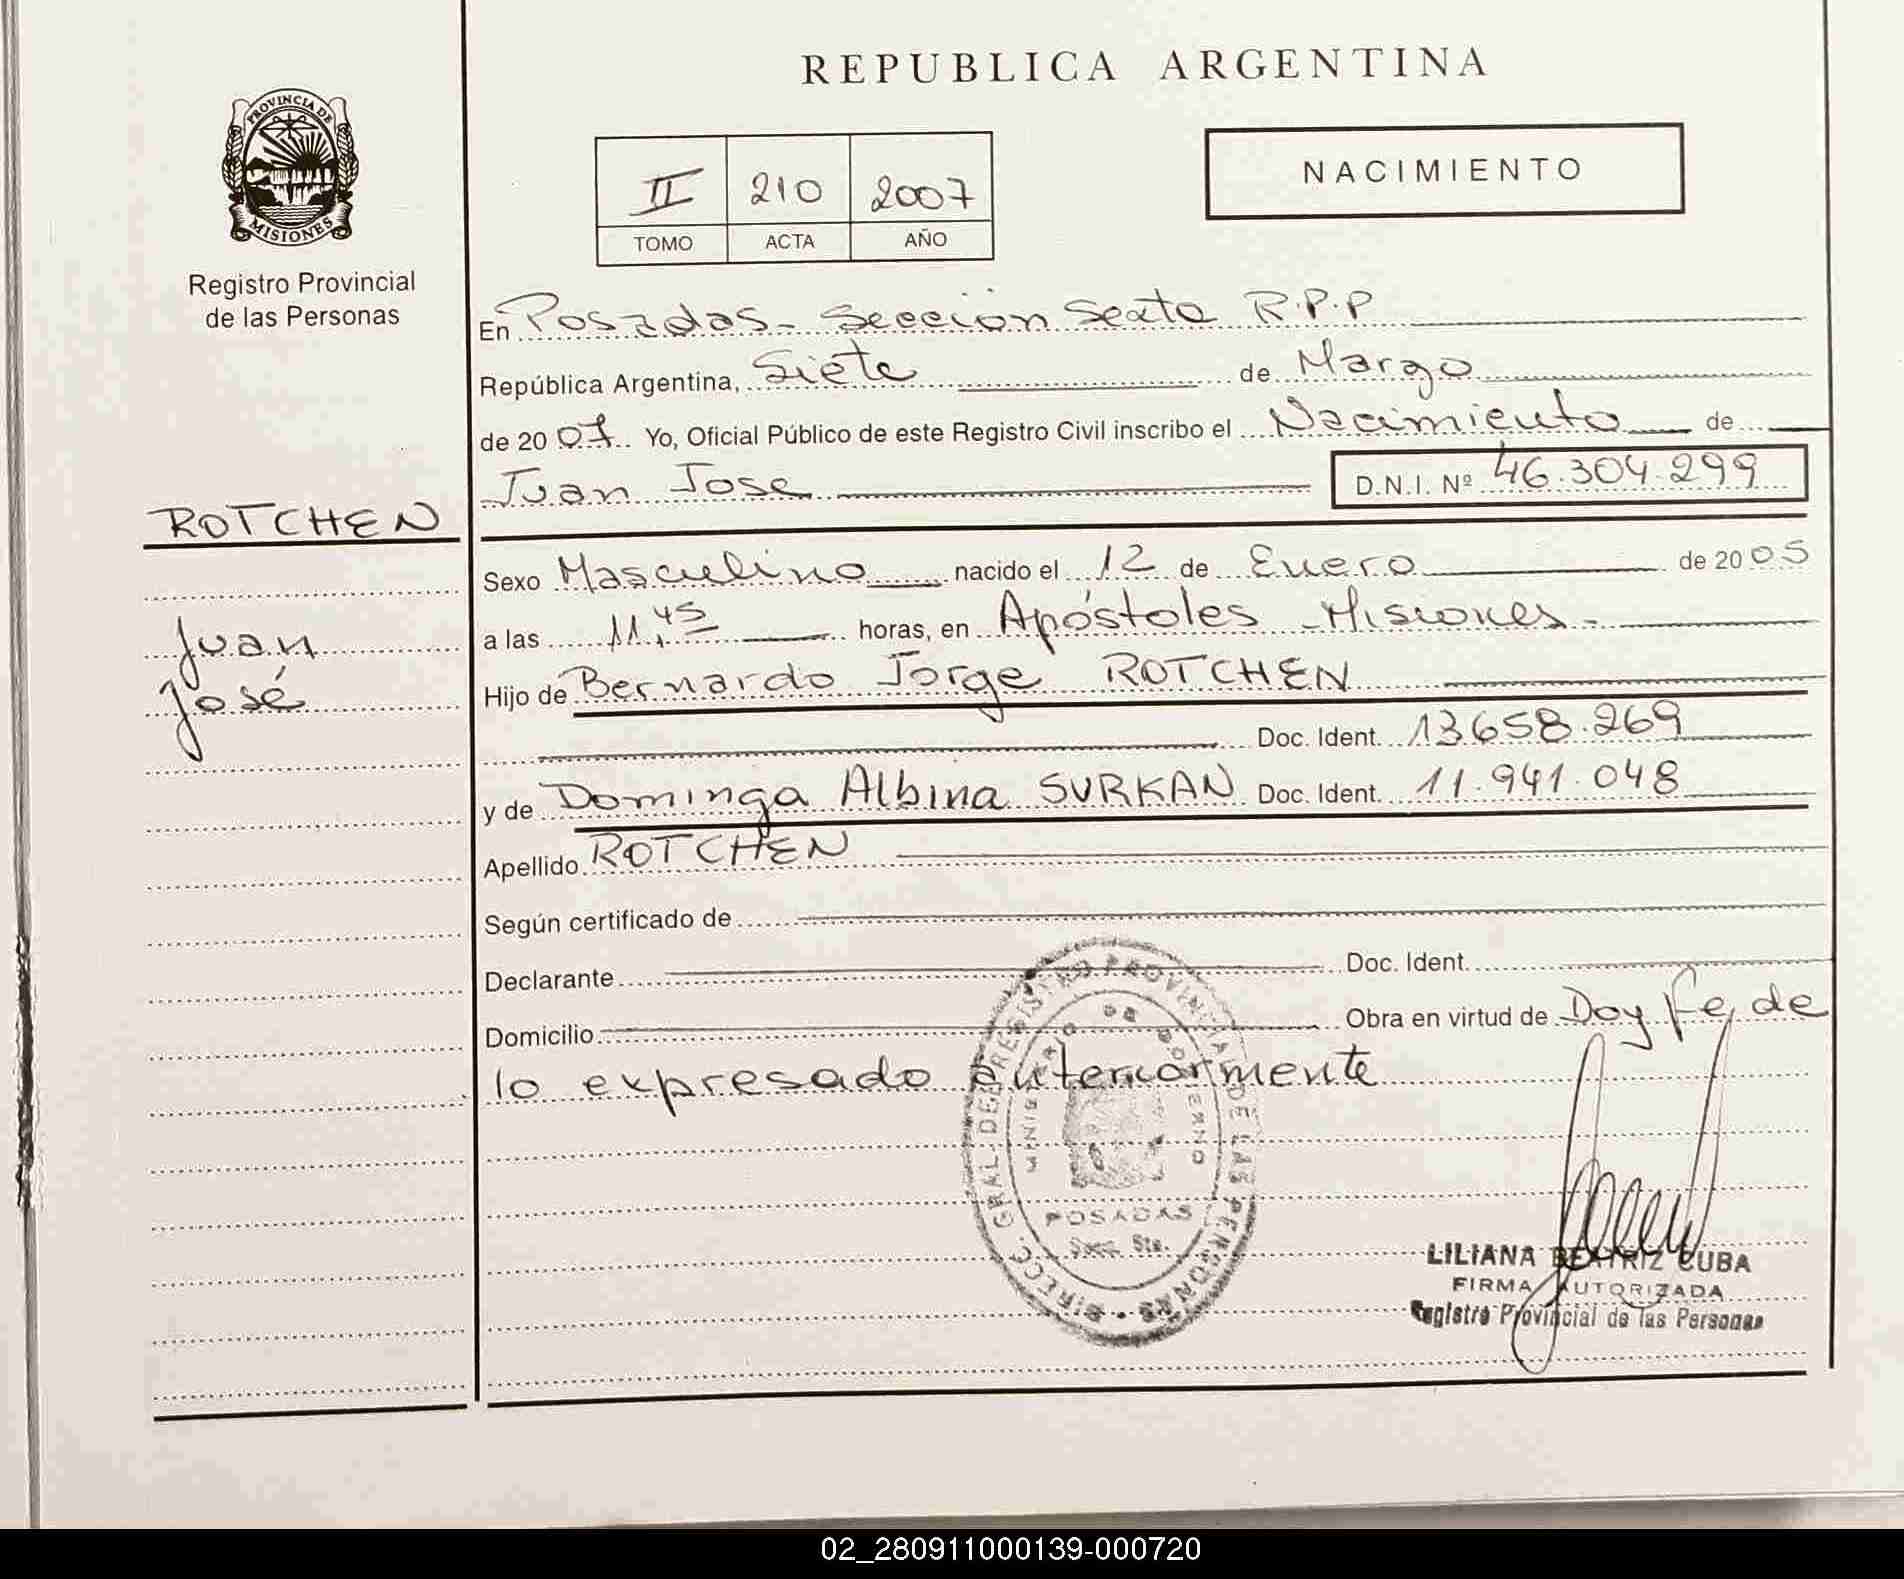 REPUBLICA ARGENTINA
PROVINCIA DE
MISIONES
Registro Provincial
de las Personas
II 210 2007
TOMO ACTA AÑO
NACIMIENTO
En Posadas - Sección Sexta R.P.P
República Argentina, Siete de Marzo
de 2007 Yo, Oficial Público de este Registro Civil inscribo el Nacimiento de
Juan Jose D.N.I. Nº 46.304.299
ROTCHEN
Juan
José
Sexo Masculino nacido el 12 de Enero de 2005
a las 11,45 horas, en Apóstoles - Misiones -
Hijo de Bernardo Jorge ROTCHEN
Doc. Ident. 13.658.269
y de Dominga Albina SURKAN Doc. Ident. 11.941.048
Apellido ROTCHEN
Según certificado de
Declarante Doc. Ident.
Domicilio Obra en virtud de Doy fe, de
lo expresado anteriormente
DIRECC. GRAL. DEL REGISTRO PROVINCIAL DE LAS PERSONAS
MINISTERIO DE GOBIERNO
POSADAS
Secc. Sta.
LILIANA BEATRIZ CUBA
FIRMA AUTORIZADA
Registro Provincial de las Personas
02_280911000139-000720